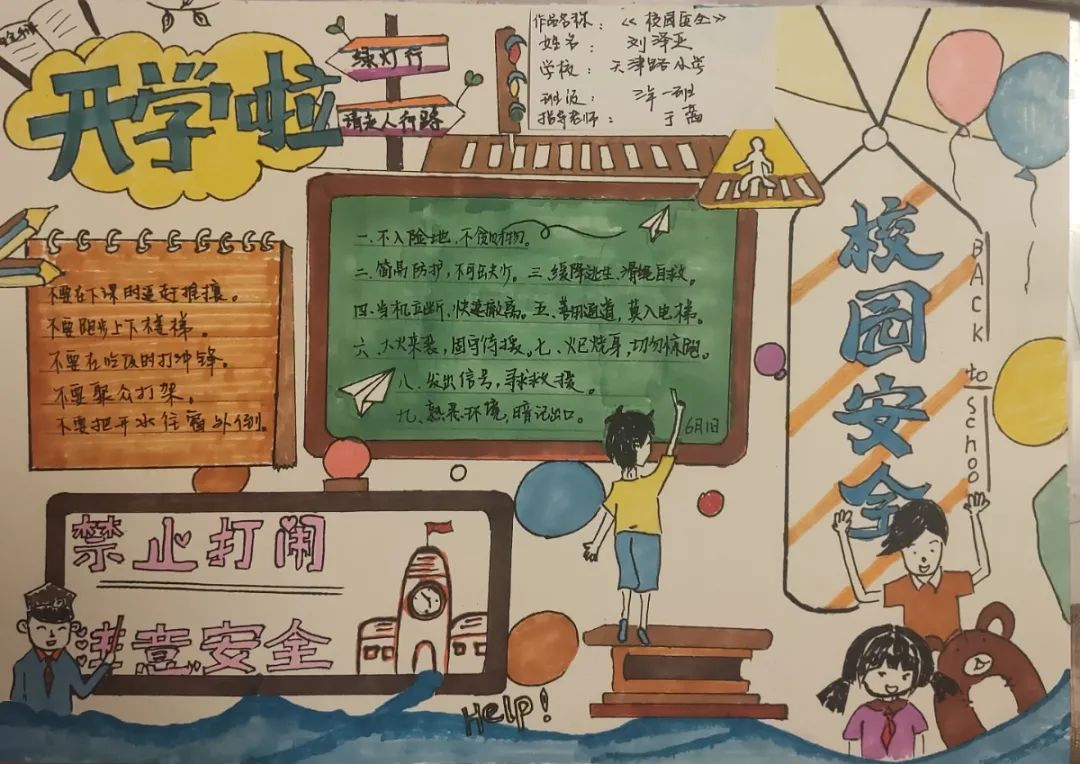 开学啦
绿灯行
请走人行路
作品名称：《校园安全》
姓名：刘泽亚
学校：天津路小学
班级：三年一班
指导老师：于
一.不入险地.不贪财物。
二.简易防护,不可出火灯。三.缓降逃生.滑绳自救。
四.当机立断.快速撤离。五.善用通道,莫入电梯。
六.大火来袭,固守待援。七.火已烧身,切勿惊跑。
八.发出信号,寻求救援。
九.熟悉环境,暗记出口。
6月1日
不要在下课时追赶推攘。
不要跑步上下楼梯。
不要在吃饭时打冲锋。
不要聚众打架。
不要把开水往窗外倒。
校园安全
BACK
to
School
禁止打闹
注意安全
Help!